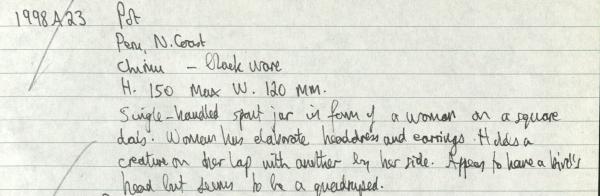 1998 A 23 Pot
Peru, N. Coast
Chimu - Black ware
H. 150 Max W. 120 MM.
Single-handled spout jar in form of a woman on a square
dais. Woman has elaborate headdress and earrings. Holds a
creature on her lap with another by her side. Appears to have a bird's
head but seems to be a quadruped.